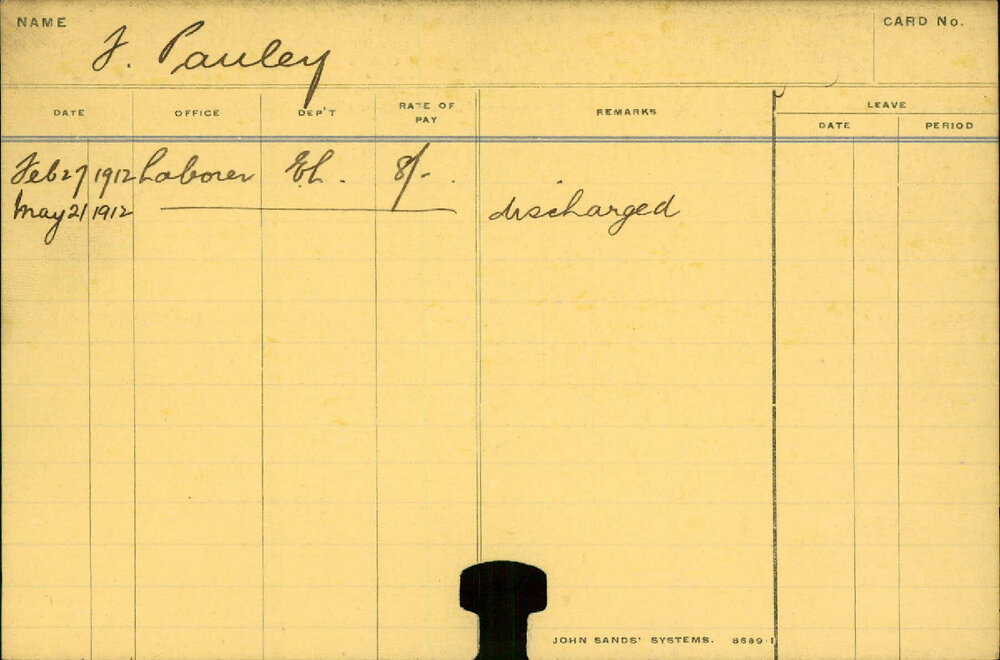 NAME F. Pauley CARD No.
DATE OFFICE DEP'T RATE OF PAY REMARKS LEAVE
DATE PERIOD
Feb 27 1912 Laborer El. 8/-.
May 21 1912 discharged
JOHN SANDS' SYSTEMS. 8689-1